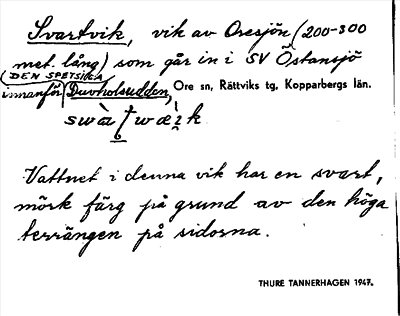 Svartvik, vik av Oresjön (200-300
met. lång) som går in i SV Östansjö
(DEN SPETSIGA
innanför) Duvholsudden, Ore sn, Rättviks tg, Kopparbergs län.
Vattnet i denna vik har en svart,
mörk färg på grund av den höga
terrängen på sidorna.
THURE TANNERHAGEN 1947.